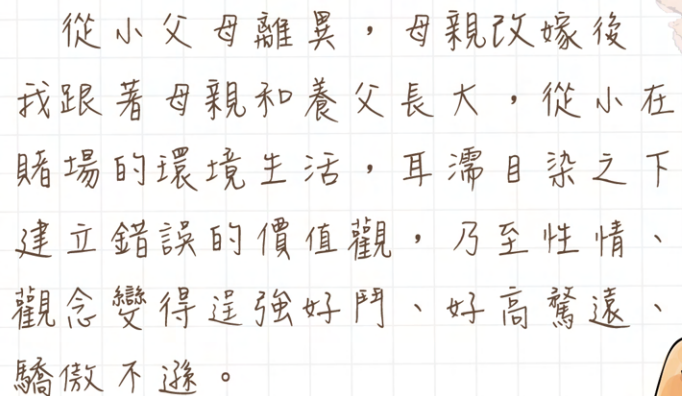 從小父母離異，母親改嫁後
我跟著母親和養父長大，從小在
賭場的環境生活，耳濡目染之下
建立錯誤的價值觀，乃至性情、
觀念變得逞強好鬥、好高騖遠、
驕傲不遜。